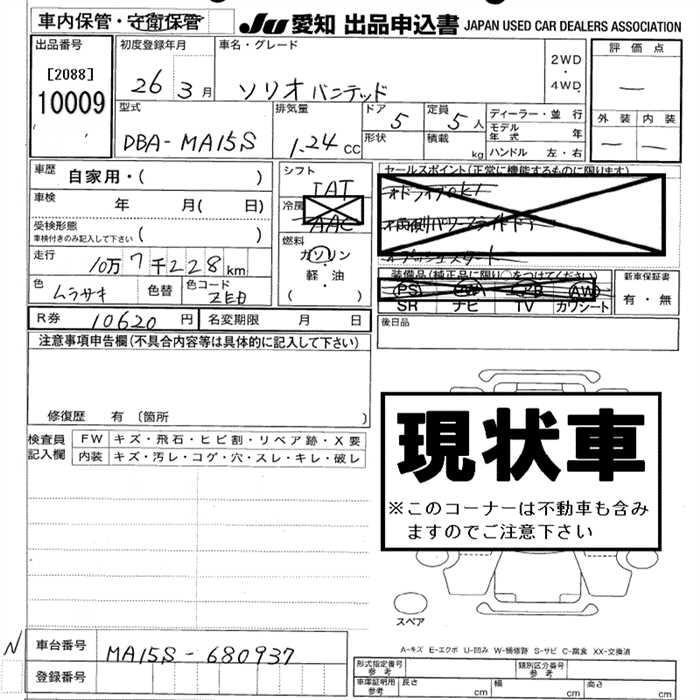 車内保管・守衛保管 JU 愛知 出品申込書 JAPAN USED CAR DEALERS ASSOCIATION
出品番号 初度登録年月 車名・グレード 評価点
[2088] 26 3月 ソリオ バンデッド 2WD・4WD
10009 型式 排気量 ドア 5 定員 5人 ディーラー・並行 外装 内装
DBA-MA15S 1.24 CC 形状 積載 kg モデル年式 年
ハンドル 左・右
車歴 自家用・( ) シフト IAT セールスポイント(正常に機能するものに限ります)
車検 年 月( 日) 冷房 AAC
受検形態 車検付きのみ記入して下さい ( )
走行 10万7千228km 燃料 ガソリン・軽・油 ( ) プッシュスタート
色 ムラサキ 色替 色コード ZED 装備品(純正品に限り○をつけてください) 新車保証書
PS PW AW 有・無
SR ナビ TV カワシート
R券 10620円 名変期限 月 日 後日品
注意事項申告欄(不具合内容等は具体的に記入して下さい)
修復歴 有 〔箇所 〕
検査員記入欄 FW キズ・飛石・ヒビ割・リペア跡・X要
内装 キズ・汚レ・コゲ・穴・スレ・キレ・破レ
現状車
※このコーナーは不動車も含みますのでご注意下さい
スペア
A-キズ E-エクボ U-凹み W-補修跡 S-サビ C-腐食 XX-交換済
N 車台番号 MA15S-680937
登録番号
形式指定番号 参考 類別区分番号 参考
車庫証明用 参考 長さ cm 幅 cm 高さ cm